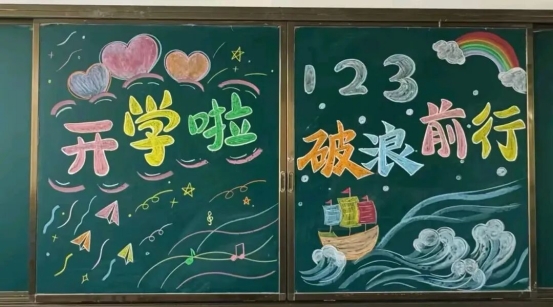 开学啦
123
破浪前行